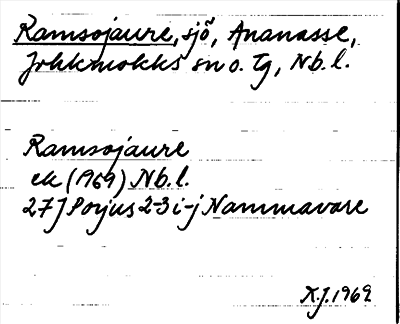 Ramsojaure, sjö, Ananasse,
Jokkmokks sn o. tg, Nb. l.
Ramsojaure
ek (1969) Nb. l.
27J Porjus 2-3 i-j Nammavare
X.J. 1969